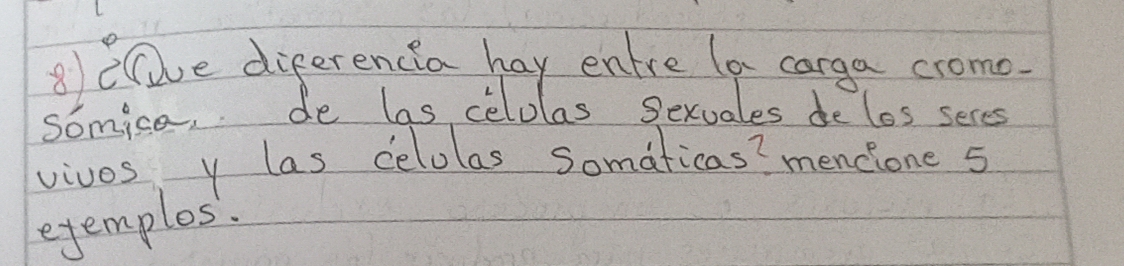 8) ¿Que diferencia hay entre la carga cromo-
sómica, de las células sexuales de los seres
vivos y las células somáticas? mencione 5
ejemplos.